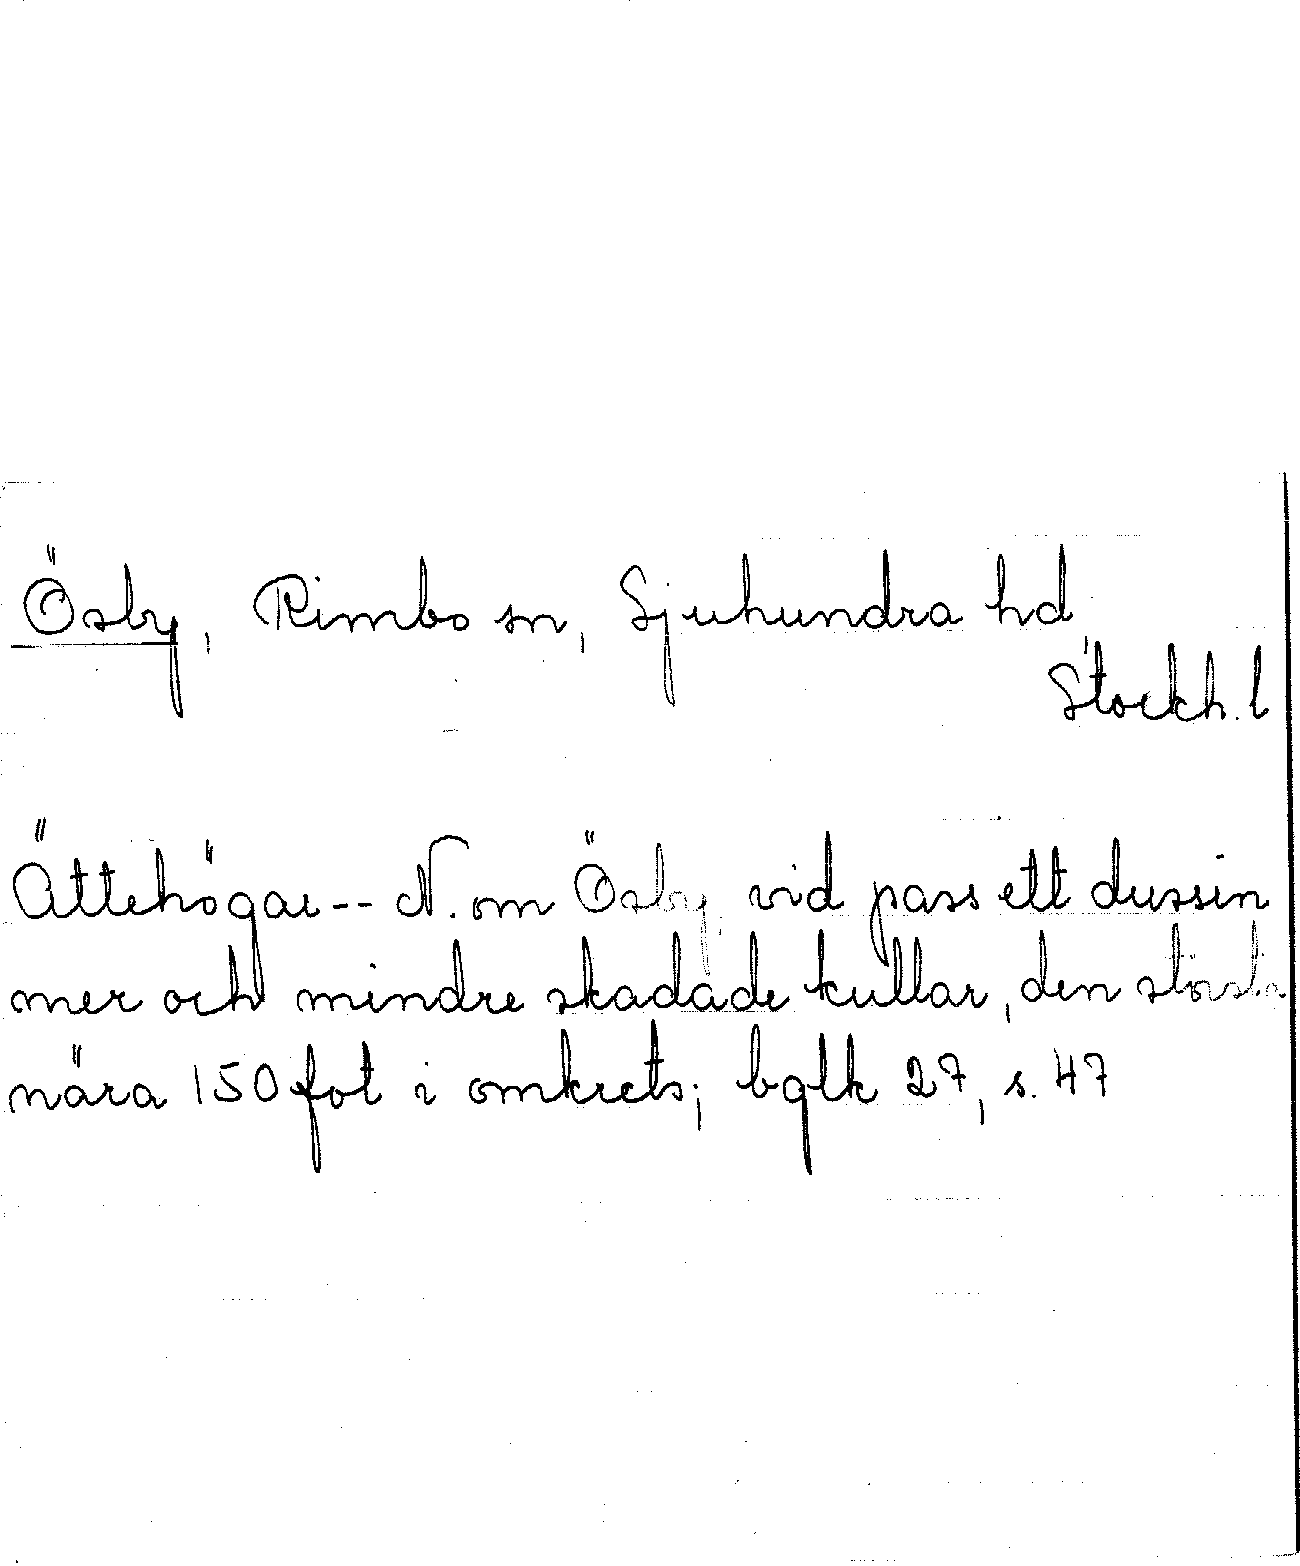 Ösby, Rimbo sn, Sjuhundra hd,
Stockh. l
Ättehögar -- N. om Ösby, vid pass ett dussin
mer och mindre skadade kullar, den största
nära 150 fot i omkrets; bglk 27, s. 47